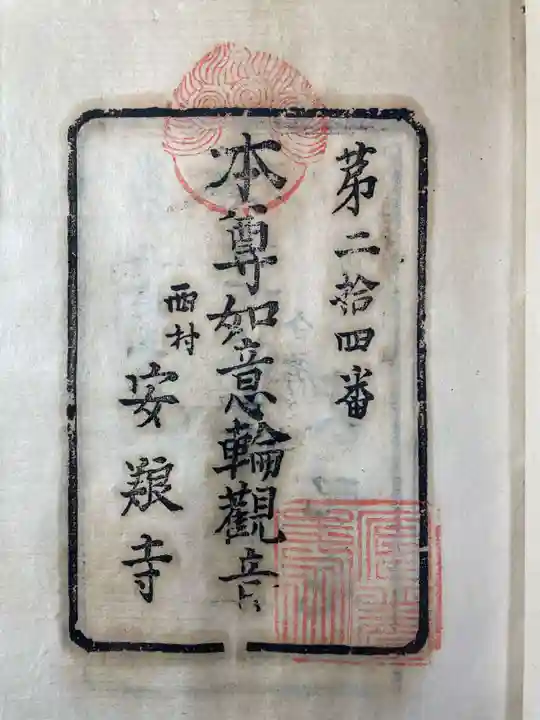 第二拾四番
本尊如意輪觀音
西村
安粮寺